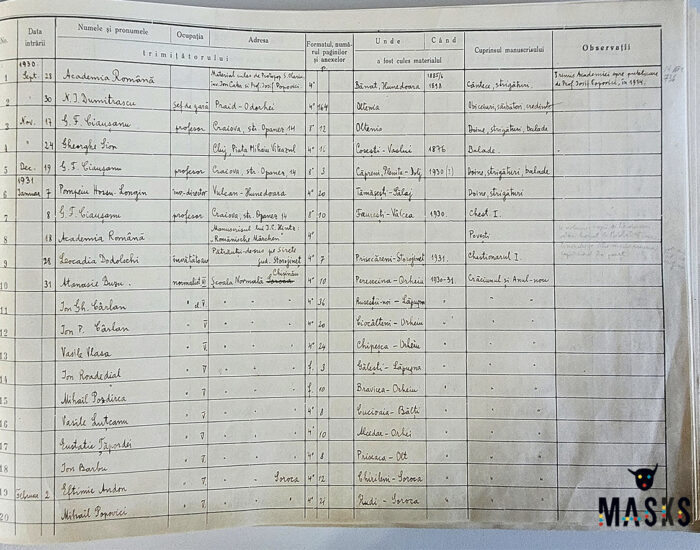 No.
Data intrării
Numele și pronumele
Ocupația
Adresa
trimițătorului
Formatul, numărul paginilor și anexelor
Unde
Când
a fost cules materialul
Cuprinsul manuscrisului
Observații
1930.
1 Sept. 28 Academia Română Material cules de Protopop S. Olariu, inv. Ion Cuka și Prof. Iosif Popovici 4° Bănat, Hunedoara 1898 Cântece, strigături,
2 " 30 N. I. Dumitrascu șef de gară Praid-Odorhei 4° 164 Oltenia Obiceiuri, sărbători, credințe
3 Nov. 17 G. F. Ciaușanu profesor Craiova, str. Opanez 14 8° 12 Oltenia Doine, strigături, balade
4 " 24 Gheorghe Sion Cluj, Piața Mihaiu Viteazul 4° 16 Cosești-Vaslui 1876 Balade
5 Dec. 19 G. F. Ciaușanu profesor Craiova, str. Opanez 14 8° 3 Căpreni, Plenița-Dolj 1930 (?) Doine, strigături, balade
1931
6 Ianuar 7 Pompeiu Hossu-Longin Vulcan-Hunedoara 4° 20 Doine, strigături
7 " 8 G. F. Ciaușanu profesor Craiova, str. Opanez 14 8° 10 Faurești-Vâlcea 1930. Chest. I.
8 " 18 Academia Română Manuscrisul lui I. C. Hintz-Românische Märchen 4° Povești
9 " 28 Leocadia Dodolschi învățătoare Pătrăuții-de-sus pe Siret jud. Storojineț 4° 7 Prisecăreni-Storojineț 1931. Chestionarul I.
10 " 31 Atanasie Busu. normalist Școala Normală Soroca Chișinău 4° 10 Peresecina-Orheiu 1930-31. Crăciunul și Anul-nou
11 Ion Gh. Cârlan " " " 4° 36 Rusești-noi-Lăpușna " " "
12 Ion P. Cârlan " V. " " 4° 20 Ciocâlteni-Orheiu " " "
13 Vasile Vlasa " V. " " 4° 24 Chipesca-Orheiu " " "
14 Ion Roadedeal " V. " " f. 3 Gălești-Lăpușna " " "
15 Mihail Pozdirca " V. " " f. 10 Bravicea-Orheiu " " "
16 Vasile Lutcanu " V. " " 4° 8 Cucioaia-Bălți " " "
17 Eustatie Țăpordei " V. " " 4° 10 Alcedar-Orhei " " "
18 Ion Barbu " V. " " 4° 8 Priscaca-Olt " " "
19 Februar 2 Eftimie Andon " V. " " Soroca 4° 12 Chirileni-Soroca " " "
20 Mihail Popovici " V. " " " 4° 21 Rudi-Soroca " " "
MASKS